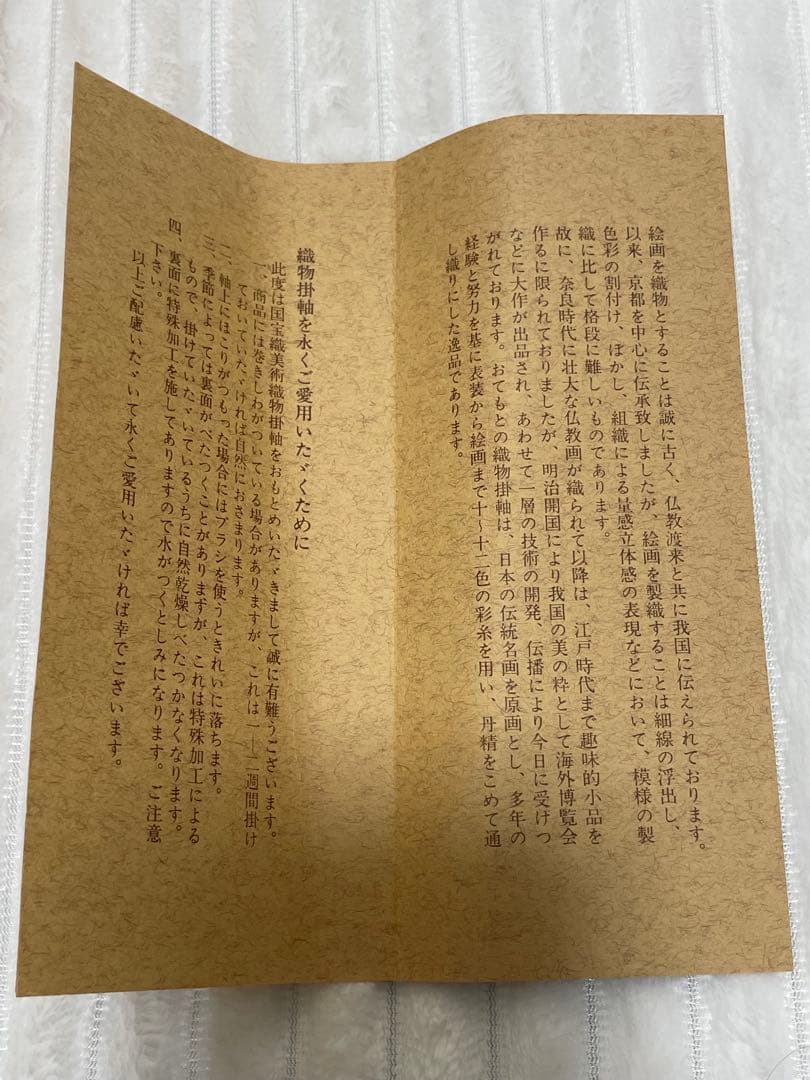 絵画を織物とすることは誠に古く、仏教渡来と共に我国に伝えられております。
以来、京都を中心に伝承致しましたが、絵画を製織することは細線の浮出し、
色彩の割付け、ぼかし、組織による量感立体感の表現などにおいて、模様の製
織に比して格段に難しいものであります。
故に、奈良時代に壮大な仏教画が織られて以降は、江戸時代まで趣味的小品を
作るに限られておりましたが、明治開国により我国の美の粋として海外博覧会
などに大作が出品され、あわせて一層の技術の開発、伝播により今日に受けつ
がれております。おてもとの織物掛軸は、日本の伝統名画を原画とし、多年の
経験と努力を基に表装から絵画まで十〜十二色の彩糸を用い、丹精をこめて通
し織りにした逸品であります。
織物掛軸を永くご愛用いたゞくために
此度は国宝織美術織物掛軸をおもとめいたゞきまして誠に有難うございます。
一、商品には巻きしわがついている場合がありますが、これは一―二週間掛け
ておいていたゞければ自然におさまります。
二、軸上にほこりがつもった場合にはブラシを使うときれいに落ちます。
三、季節によっては裏面がべたつくことがありますが、これは特殊加工による
もので、掛けていたゞいているうちに自然乾燥しべたつかなくなります。
四、裏面に特殊加工を施してありますので水がつくとしみになります。ご注意
下さい。
以上ご配慮いたゞいて永くご愛用いたゞければ幸でございます。